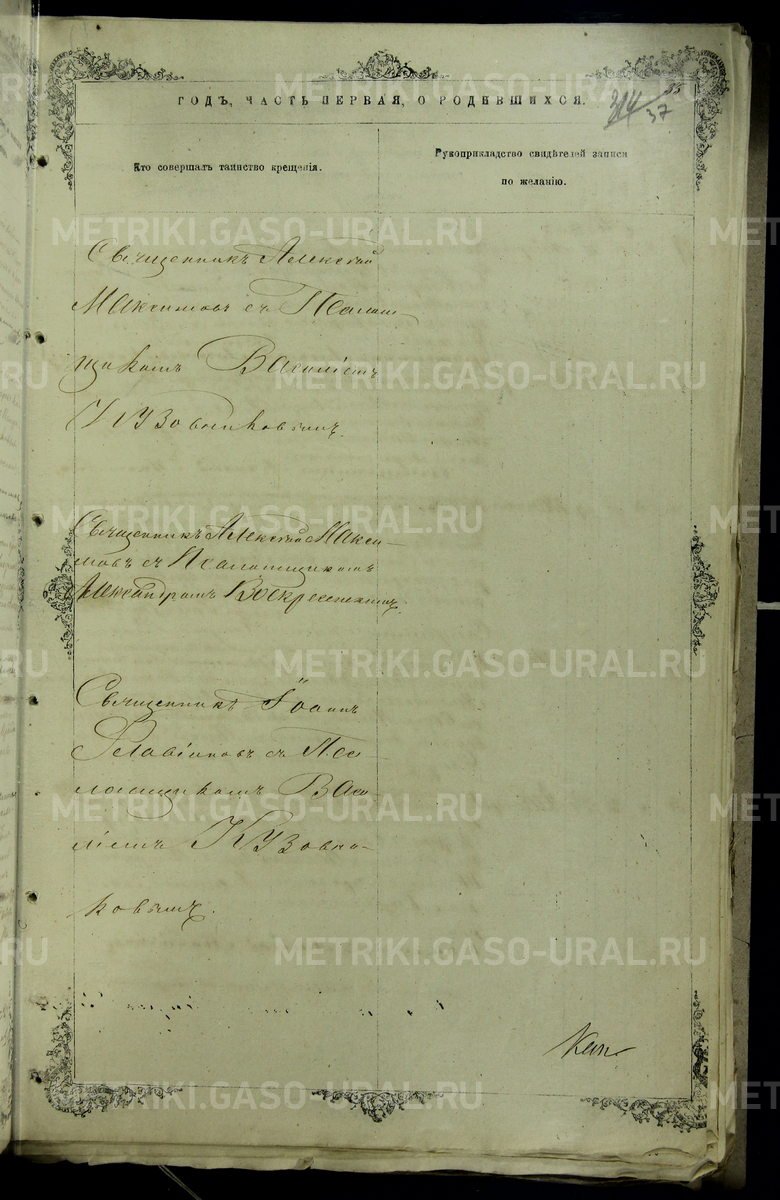 ГОДЪ, ЧАСТЬ ПЕРВАЯ, О РОДИВШИХСЯ.
314
37
Кто совершалъ таинство крещенія.
Рукоприкладство свидѣтелей записи
по желанію.
Священникъ Алексѣй
Максимовъ съ Псалом-
щикомъ Василіемъ
Кузовниковымъ.
Священникъ Алексѣй Макси-
мовъ съ Псаломщикомъ
Александромъ Воскресенскимъ.
Священникъ Іоаннъ
Словцовъ съ Пса-
ломщикомъ Васи-
ліемъ Кузовни-
ковымъ.
METRIKI.GASO-URAL.RU